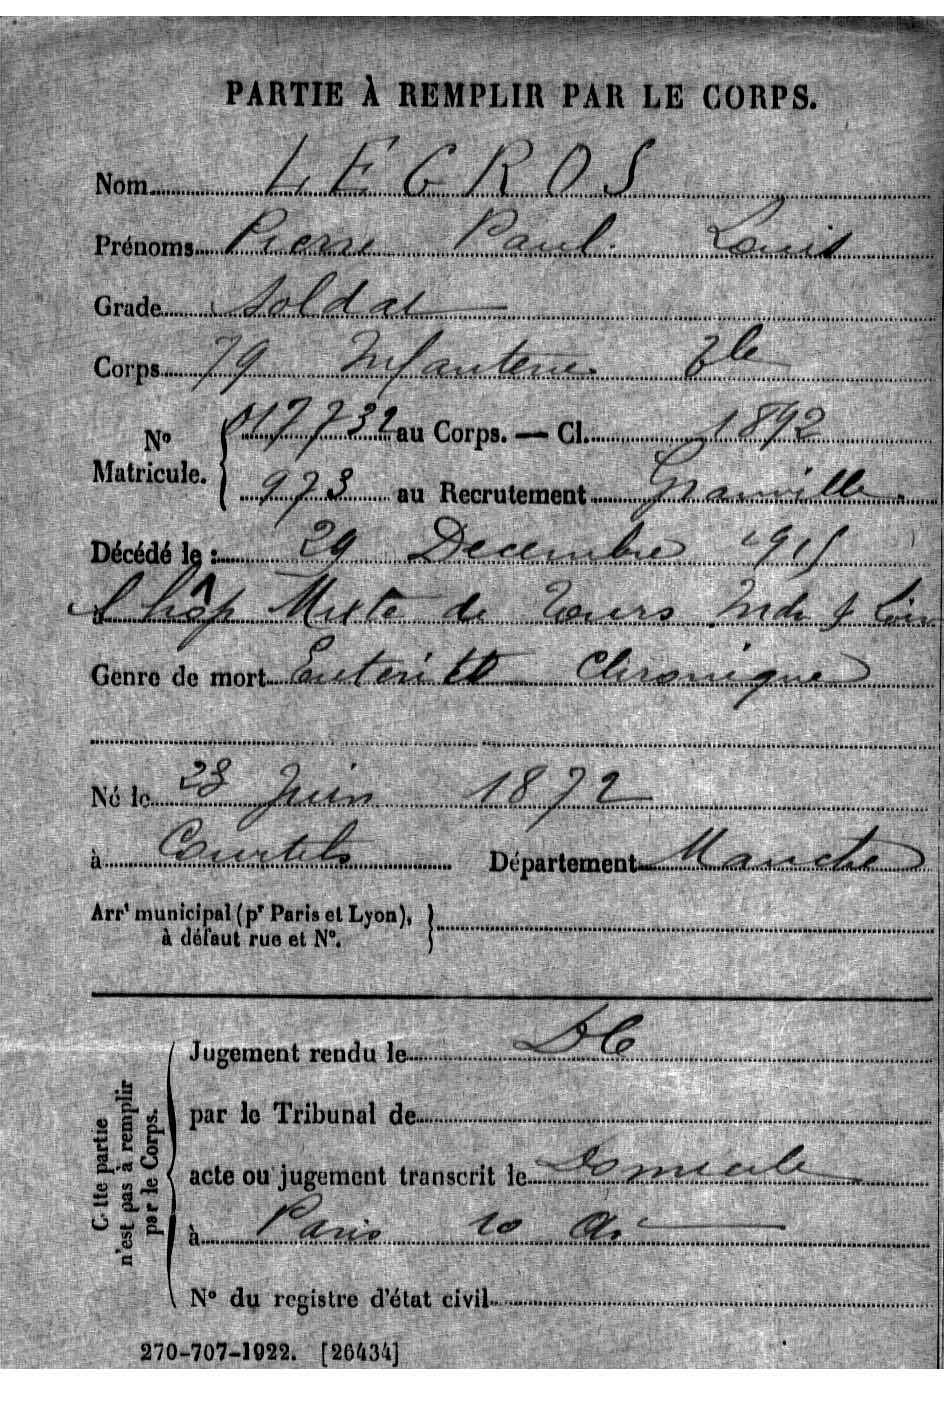 PARTIE À REMPLIR PAR LE CORPS.
Nom LEGROS
Prénoms Pierre Paul Louis
Grade Soldat
Corps 79 Infanterie Tle
No Matricule. { 017732 au Corps. — Cl. 1892
973 au Recrutement Granville.
Décédé le : 29 Decembre 1915
à l'hôp Mixte de Tours Indr & Loir
Genre de mort Enterite Chronique
Né le 23 Juin 1872
à Courtils Département Manche
Arrt municipal (pr Paris et Lyon), }
à défaut rue et No.
Cette partie n'est pas à remplir par le Corps.
Jugement rendu le DC
par le Tribunal de
acte ou jugement transcrit le Domicile
à Paris 10 Ar
No du registre d'état civil
270-707-1922. [26434]